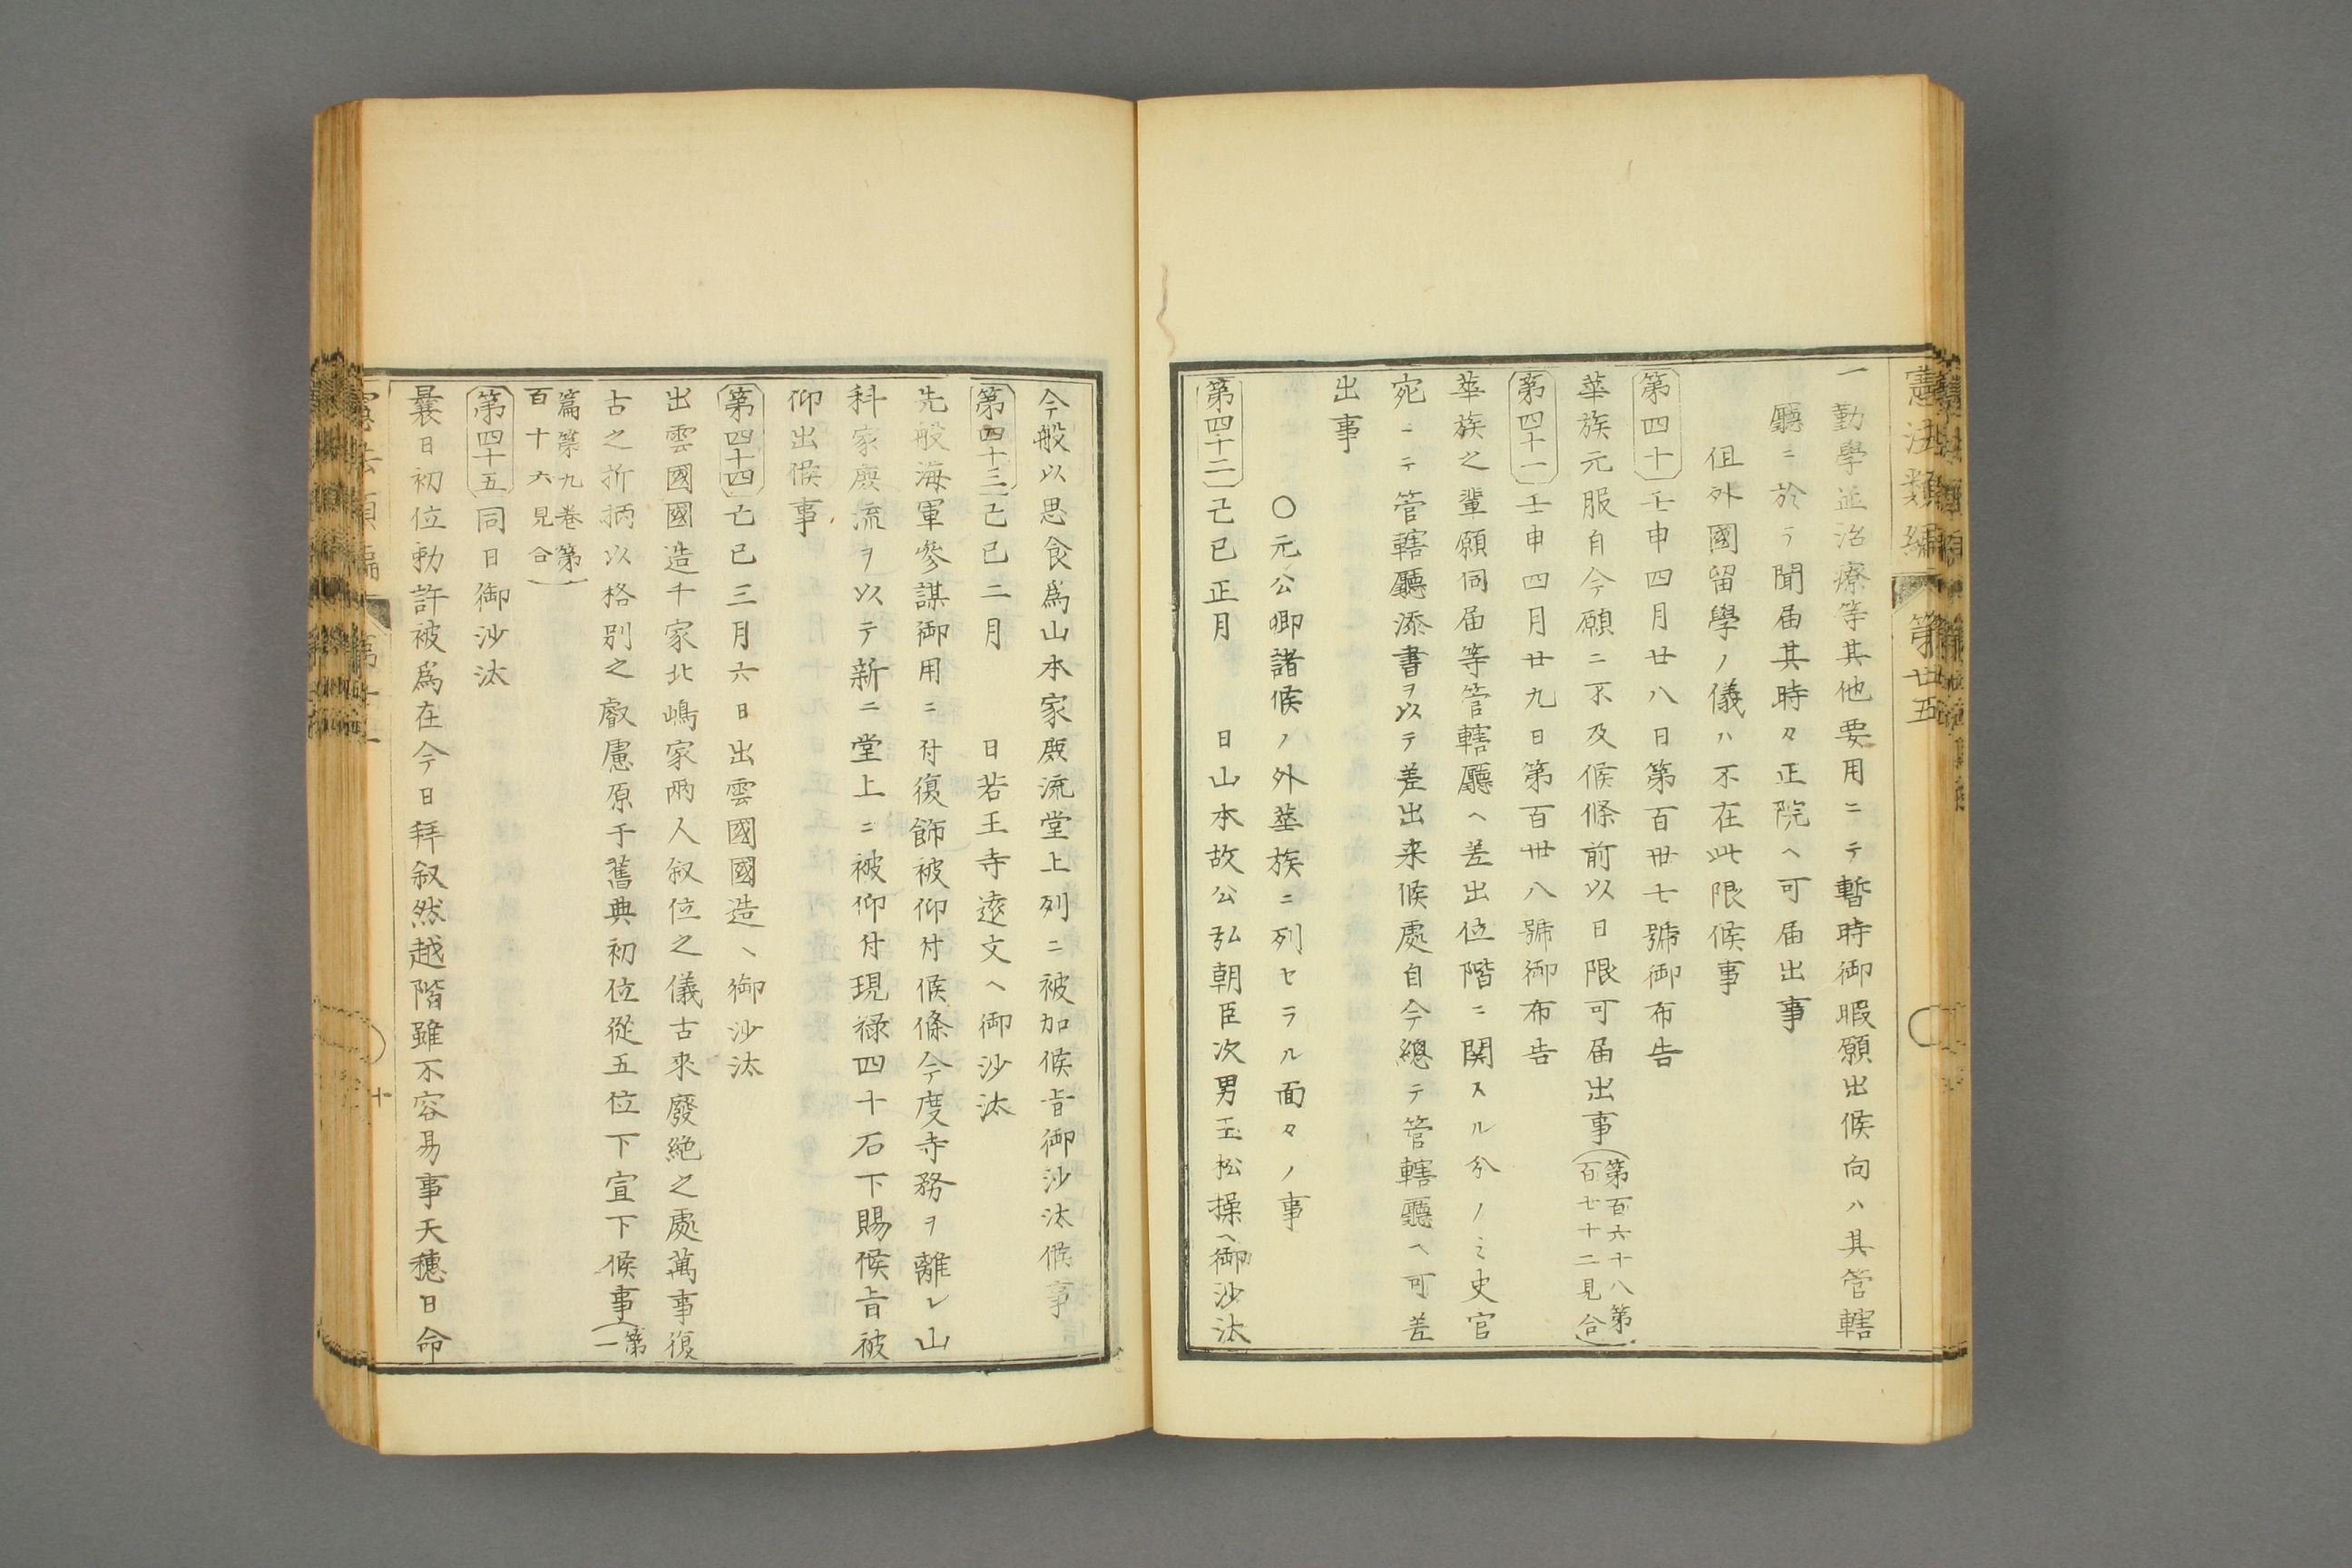 憲法類編 第廿五
一勤學並治療等其他要用ニテ暫時御暇願出候向ハ其管轄
廳ニ於テ聞届其時々正院ヘ可届出事
但外國留學ノ儀ハ不在此限候事
第四十 壬申四月廿八日第百卅七號御布告
華族元服自今願ニ不及候條前以日限可届出事(第百六十八第
百七十二見合)
第四十一 壬申四月廿九日第百卅八號御布告
華族之輩願伺届等管轄廳ヘ差出位階ニ関スル分ノミ史官
宛ニテ管轄廳添書ヲ以テ差出来候處自今總テ管轄廳ヘ可差
出事
〇元公卿諸候ノ外華族ニ列セラル面々ノ事
第四十二 己巳正月 日山本故公弘朝臣次男玉松操ヘ御沙汰
今般以思食爲山本家庶流堂上列ニ被加候旨御沙汰候事
第四十三 己巳二月 日若王寺遠文ヘ御沙汰
先般海軍參謀御用ニ付復飾被仰付候條今度寺務ヲ離レ山
科家庶流ヲ以テ新ニ堂上ニ被仰付現禄四十石下賜候旨被
仰出候事
第四十四 己巳三月六日出雲國國造ヘ御沙汰
出雲國國造千家北嶋家兩人叙位之儀古來廢絶之處萬事復
古之折柄以格別之叡慮原于舊典初位從五位下宣下候事(第一
篇第九巻第
百十六見合)
第四十五 同日御沙汰
曩日初位勅許被爲在今日拜叙然越階雖不容易事天穗日命
十